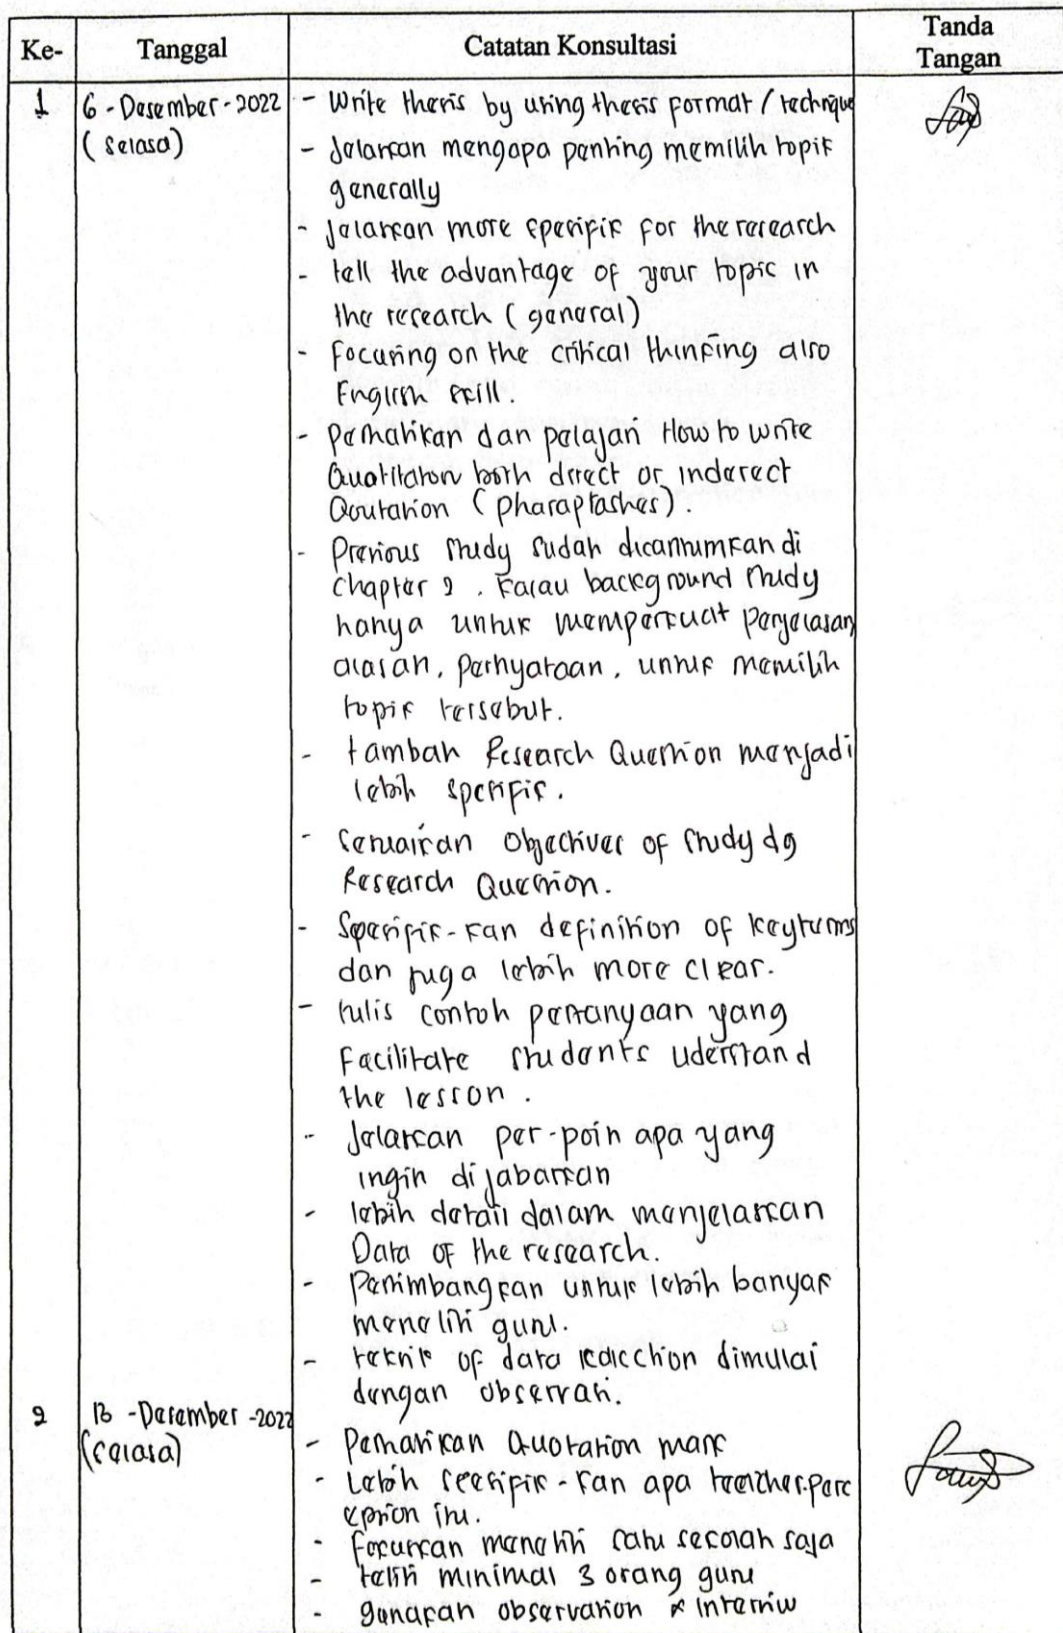 Ke- Tanggal Catatan Konsultasi Tanda Tangan
1 6 - Desember - 2022 - Write thesis by using thesis format / technique
(Selasa) - Jelaskan mengapa penting memilih topik
generally
- Jelaskan more spesifik for the research
- tell the advantage of your topic in
the research (general)
- Focusing on the critical thinking also
English skill.
- Perhatikan dan pelajari How to write
both direct or inderect
Qoutation (Pharaprashes).
- Previous study sudah dicantumkan di
chapter 2. Kalau background study
hanya untuk memperkuat penjelasan,
alasan, pernyataan, untuk memilih
topik tersebut.
- tambah Research Question menjadi
lebih spesifik.
- Sesuaikan Objectives of study dg
Research Question.
- Spesifik-kan definition of keyterms
dan juga lebih more clear.
- tulis contoh pertanyaan yang
Facilitate students uderstand
the lesson.
- Jelaskan per-poin apa yang
ingin dijabarkan
- lebih detail dalam menjelaskan
Data of the research.
- Pertimbangkan untuk lebih banyak
meneliti guru.
- teknik of data dimulai
dengan observasi.
2 13 - Desember - 2022
(Selasa) - Perhatikan Quotation mark
- Lebih spesifik-kan apa teacher perc
eption itu.
- Fokuskan meneliti satu sekolah saja
- teliti minimal 3 orang guru
- gunakan observation & interviw